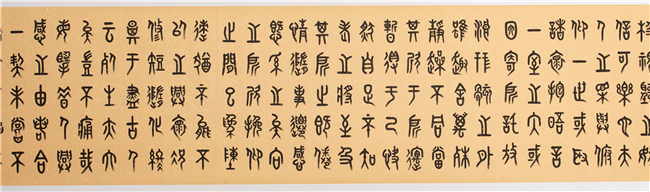 極視聽之娛
信可樂也夫
人之相與俯
仰一世或取
諸懷抱晤言
一室之內或
因寄所託放
浪形骸之外
雖取舍萬殊
靜躁不同當
其欣於所遇
暫得於己快
然自足不知
老之將至及
其所之既倦
情隨事遷感
慨係之矣向
之所欣俛仰
之間以為陳
迹猶不能不
以之興懷況
脩短隨化終
期於盡古人
云死生亦大
矣豈不痛哉
每攬昔人興
感之由若合
一契未嘗不